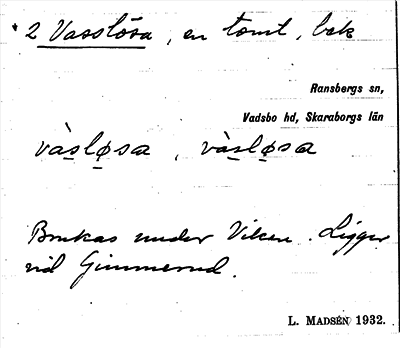 * 2 Vasslösa, en tomt, bek
Ransbergs sn,
Vadsbo hd, Skaraborgs län
vàs̲lø̣sa, vàs̲lø̣sa
Brukas under Viken. Ligger
vid Gimmerud.
L. MADSÉN 1932.